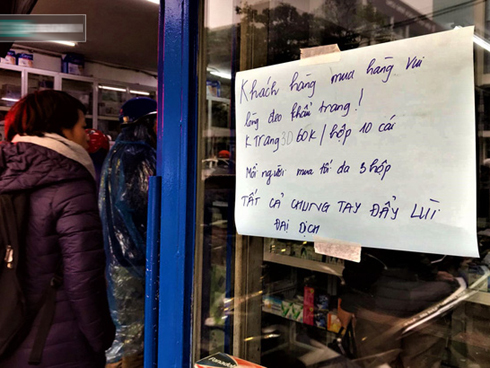 Khách hàng mua hàng vui
lòng đeo khẩu trang!
K Trang 3D 60K/hộp 10 cái
Mỗi người mua tối đa 3 hộp
TẤT CẢ CHUNG TAY ĐẨY LÙI
ĐẠI DỊCH
Panadol